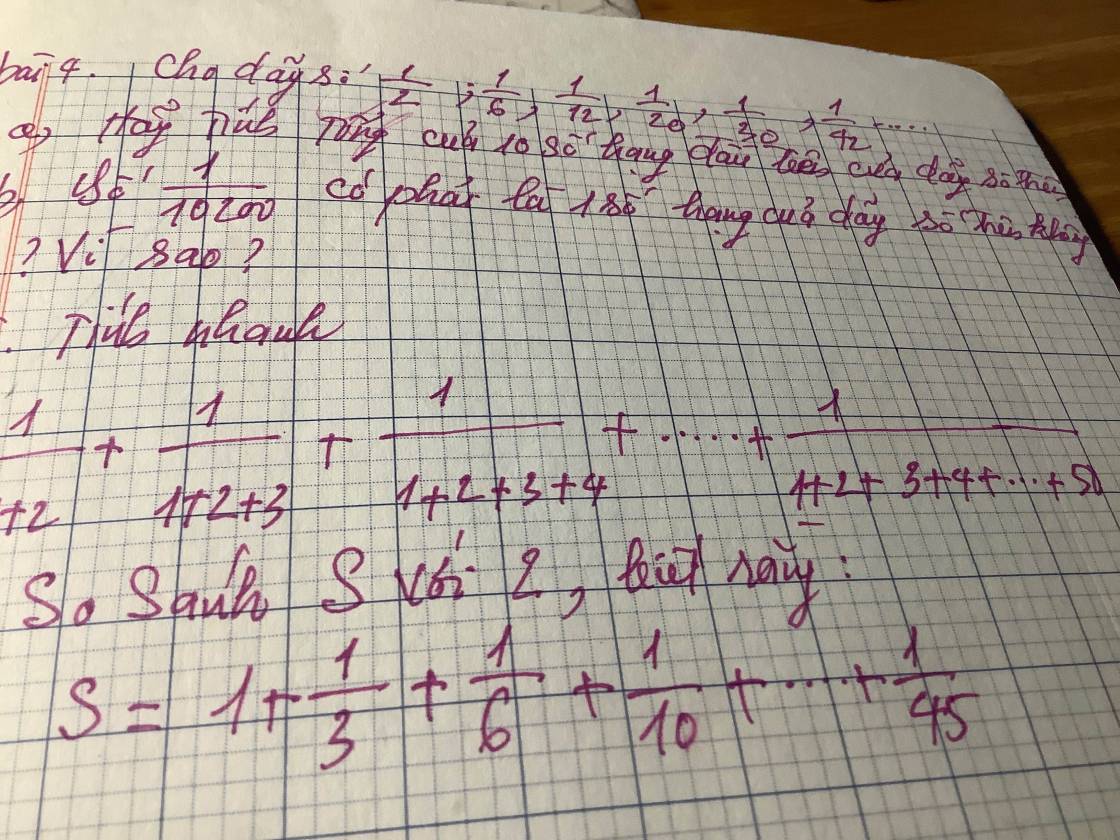 bài 4. Cho dãy số: 1/2 ; 1/6, 1/12, 1/20, 1/30, 1/42 ....
a, Hãy Tính Tổng của 10 số hạng đầu tiên của dãy số trên
b, Số 1/10200 có phải là 1 số hạng của dãy số trên không
? Vì sao?
. Tính nhanh
1/+2 + 1/1+2+3 + 1/1+2+3+4 + ..... + 1/1+2+3+4+...+50
So Sánh S với 2, biết rằng:
S = 1 + 1/3 + 1/6 + 1/10 + ..... + 1/45